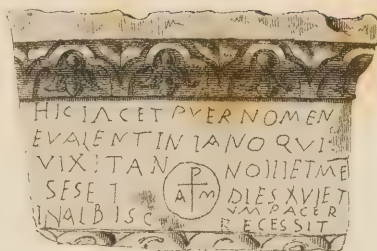 HIC IACET PVER NOMEN
E VALENTINIANO QVI
VIXITAN NOIIIETME
SESET DIES XVIET
INALBISC VMPACE R
RECESSIT